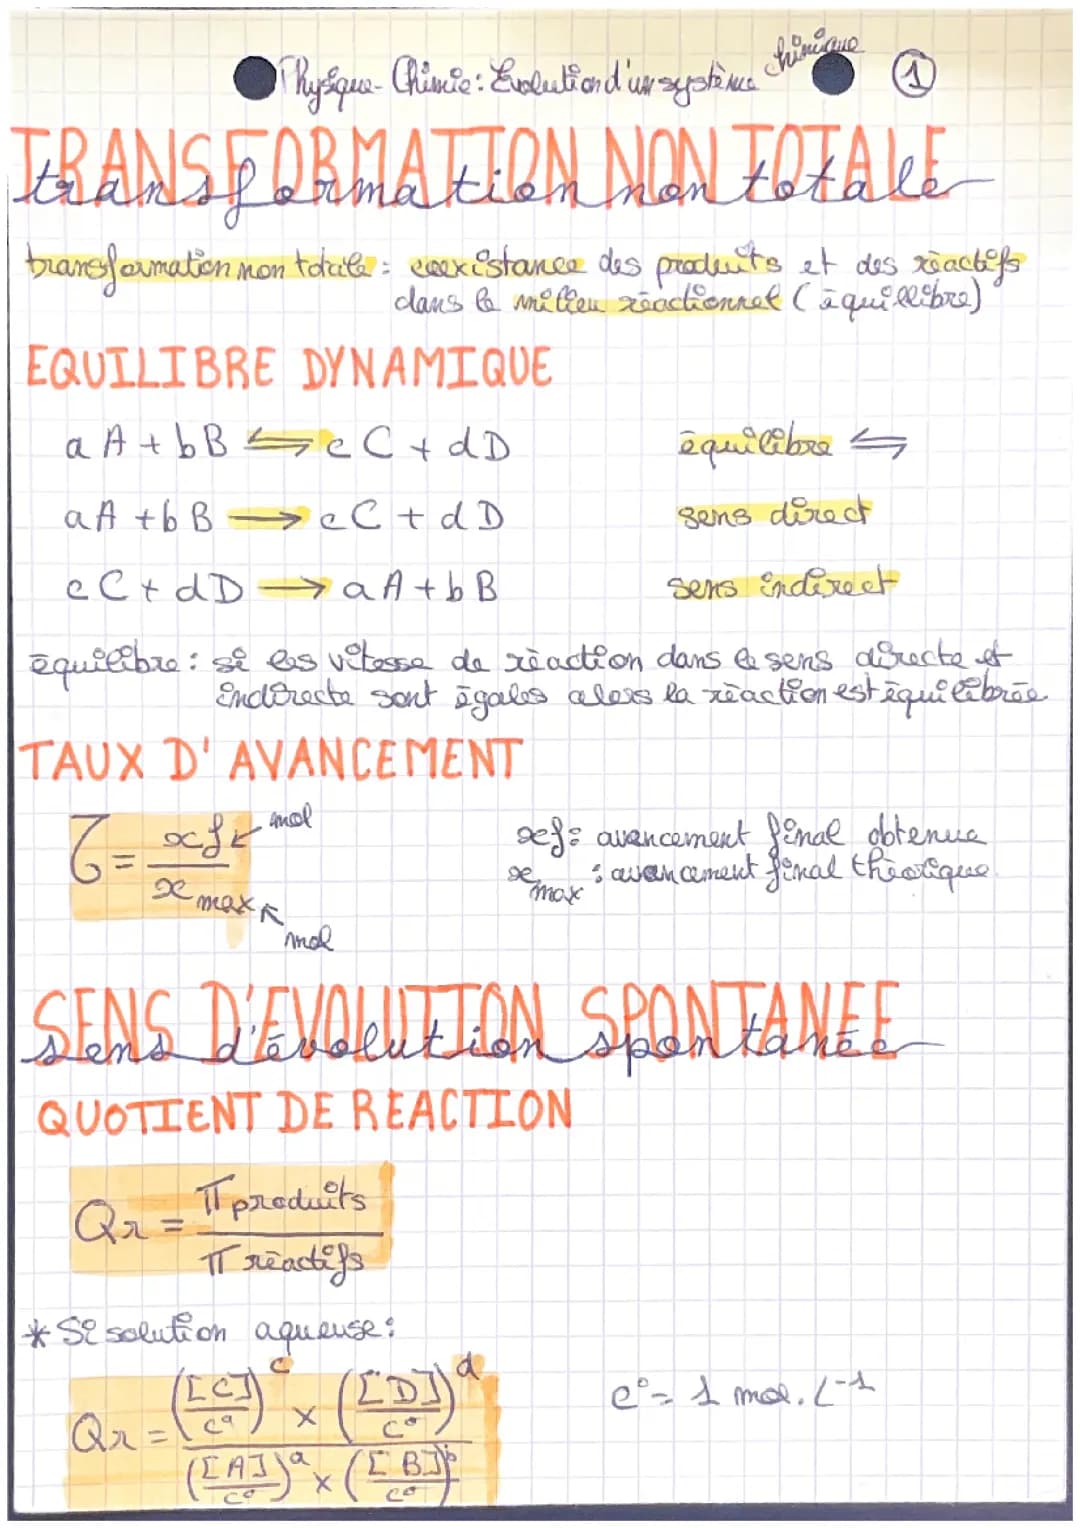 Physique-Chimie: Evolution d'un système chimique ①
TRANSFORMATION NON TOTALE
transformation non totale
transformation non totale : coexistance des produits et des réactifs
dans le milieu réactionnel (équillibre)
EQUILIBRE DYNAMIQUE
a A + b B ⇆ c C + d D équilibre ⇆
a A + b B → c C + d D sens direct
c C + d D → a A + b B sens indirect
équilibre : si les vitesse de réaction dans le sens directe et
indirecte sont égales alors la réaction est équilibrée
TAUX D'AVANCEMENT
τ = xf / x max
mol
mol
xf : avancement final obtenue
x max : avancement final théorique
SENS D'EVOLUTION SPONTANEE
sens d'évolution spontanée
QUOTIENT DE REACTION
Qr = π produits / π réactifs
* Si solution aqueuse :
Qr = ([C]/c°)^c × ([D]/c°)^d / ([A]/c°)^a × ([B]/c°)^b
c° = 1 mol.L⁻¹